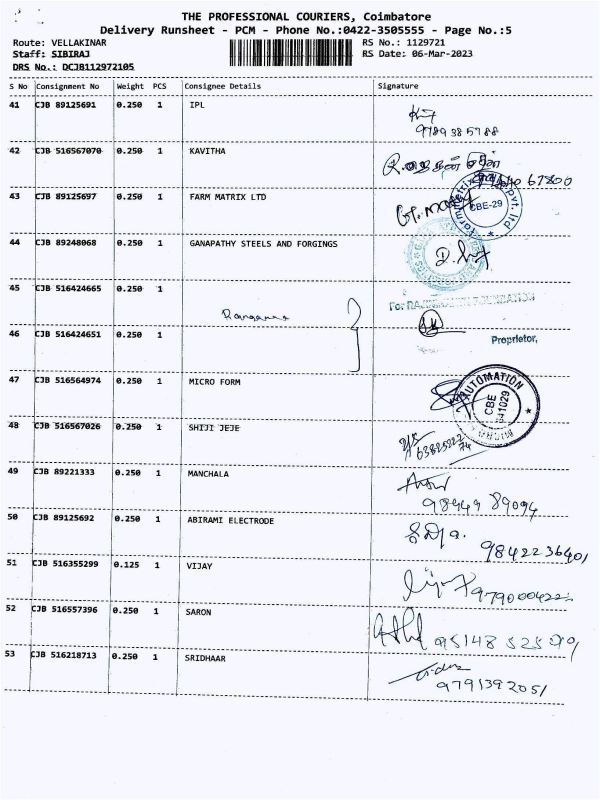 THE PROFESSIONAL COURIERS, Coimbatore
Delivery Runsheet - PCM - Phone No.:0422-3505555 - Page No.:5
Route: VELLAKINAR RS No.: 1129721
Staff: SIBIRAJ RS Date: 06-Mar-2023
DRS No.: DCJB112972105
S No Consignment No Weight PCS Consignee Details Signature
41 CJB 89125691 0.250 1 IPL
9789385988
42 CJB 516567070 0.250 1 KAVITHA
67800
43 CJB 89125697 0.250 1 FARM MATRIX LTD
CBE-29
44 CJB 89248068 0.250 1 GANAPATHY STEELS AND FORGINGS
45 CJB 516424665 0.250 1
46 CJB 516424651 0.250 1
Proprietor,
47 CJB 516564974 0.250 1 MICRO FORM
AUTOMATION
CBE
48 CJB 516567026 0.250 1 SHIJI JEJE
49 CJB 89221333 0.250 1 MANCHALA
98949 89094
50 CJB 89125692 0.250 1 ABIRAMI ELECTRODE
9842236401
51 CJB 516355299 0.125 1 VIJAY
52 CJB 516557396 0.250 1 SARON
53 CJB 516218713 0.250 1 SRIDHAAR
9791392051